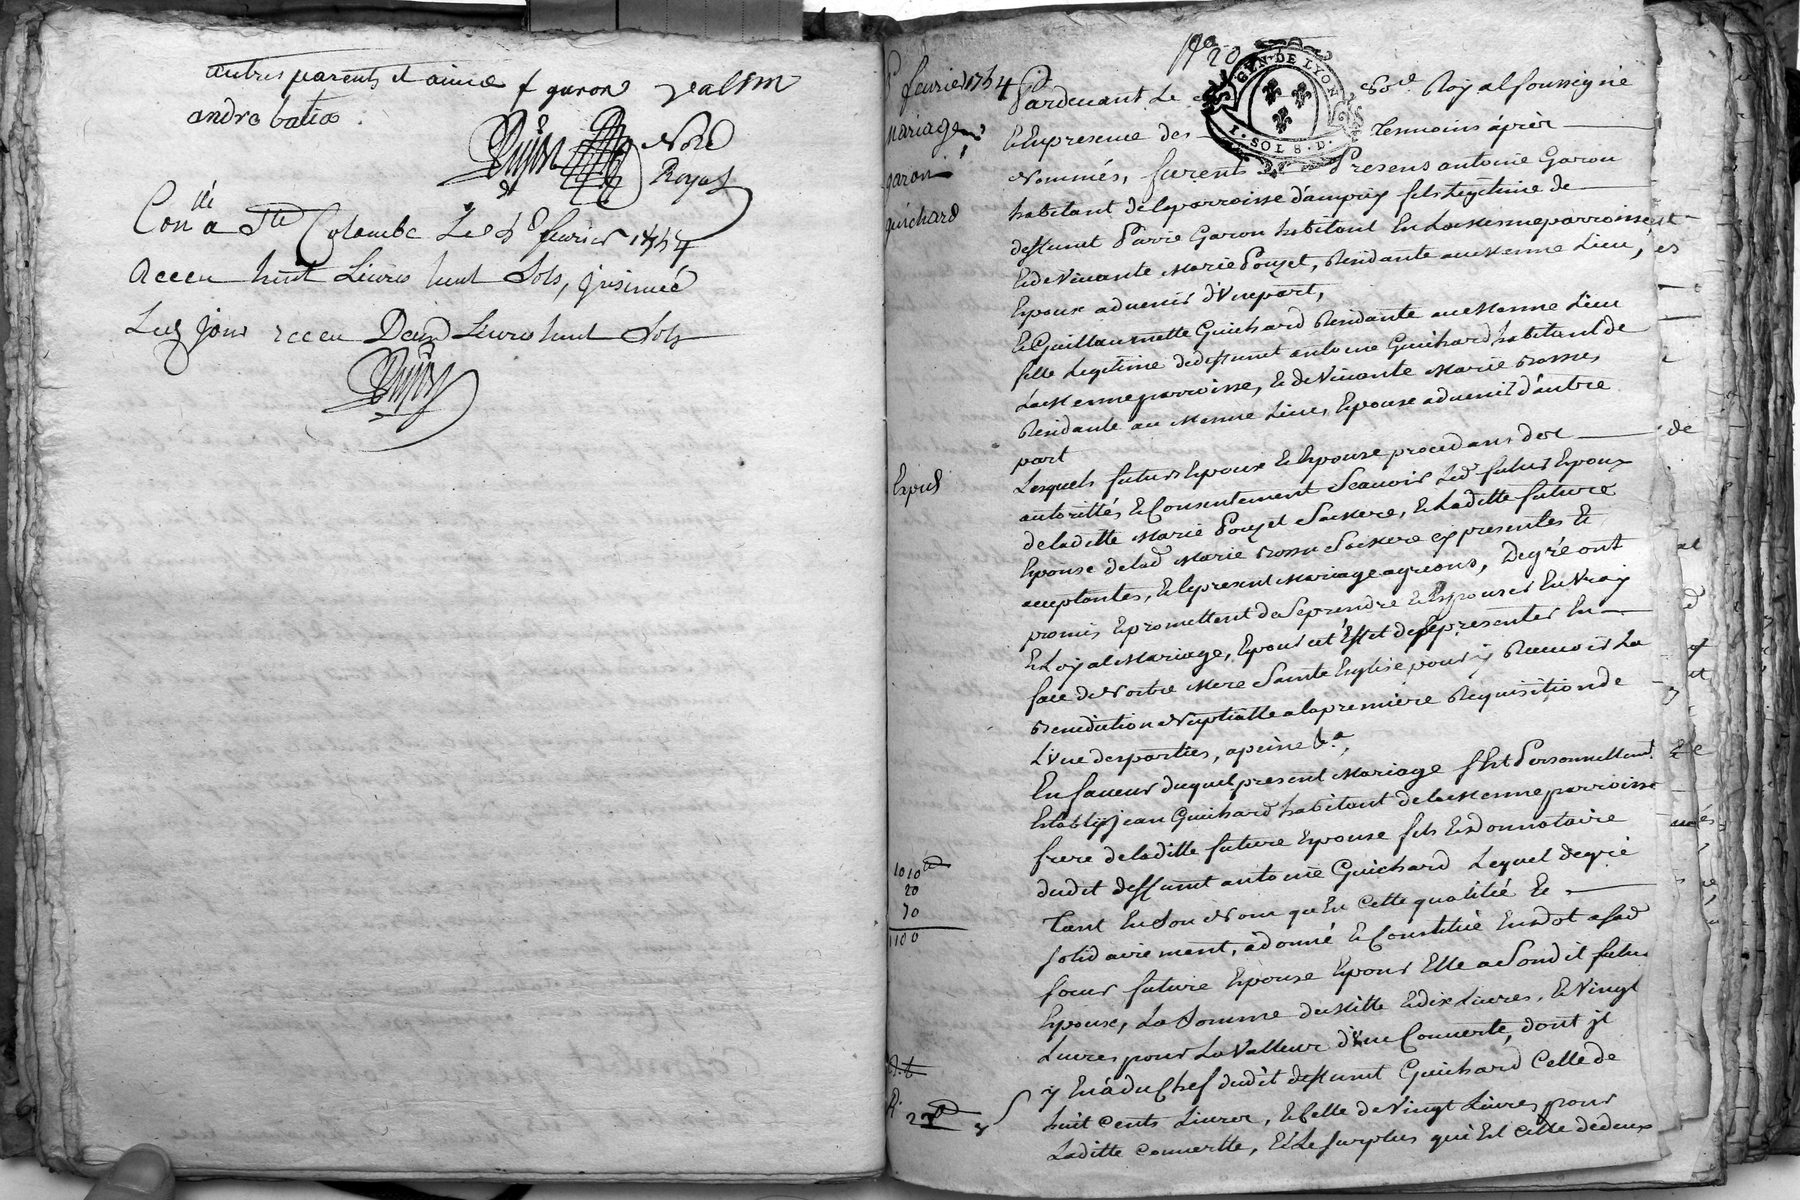 autres parents et amis f garon
andre batia
Not.re
Royal
Con.lle a Ste Colombe Le 8.e fevrier 1754
Receu huit Livres huit Sols, insinué
Led. jour receu Deux Livres huit Sols
fevrier 1754
Mariage
garon
guichard
GEN. DE LYON
I. SOL 8. D.
Pardevant Le No.re Royal soussigné
Et En presence des Temoins après
Nommés, furent Presens antoine Garon
habitant de la parroisse d'ampuy fils Legitime de
deffunct Pierre Garon habitant En La Meme parroisse
Et de Vivante Marie Pouzet, Residante au Meme Lieu,
Epoux advenir d'Une part,
Et Guillaumette Guichard Residante au Meme Lieu
fille Legitime de deffunct antoine Guichard habitant de
La Meme parroisse, Et de Vivante Marie
Residante au Meme Lieu, Epouse advenir d'autre
part
Lesquels futurs Epoux Et Epouse procedans des
autorittés Et Consentement Scavoir Led. futur Epoux
de laditte Marie Pouzet Sa Mere, Et Laditte future
Epouse de lad. Marie Sa Mere cy presentes Et
acceptantes, Et le present Mariage agreans, De gré ont
promis Et promettent de Se prendre Et Epouser En Vray
Et Loyal Mariage, Et pour cet Effet de Se presenter En
face de Notre Mere Sainte Eglise pour y Recevoir La
Benediction Nuptialle a la premiere Requisition de
L'Une des parties, a peine &.a,
En faveur duquel present Mariage S'est Personnellem.t
Etably jean Guichard habitant de la Meme parroisse
frere de laditte future Epouse fils Et donnataire
dudit deffunt antoine Guichard Lequel de gré
Tant En Son Nom qu'En Cette qualitié Et
solidairement, a donné Et Constitué En dot a sad.
soeur future Epouse Et pour Elle a Sondit futur
Epoux, La Somme de Mille Et dix Livres, Et Vingt
Livres pour La Valleur d'Une Couverte, dont il
y En à du Chef dudit deffunt Guichard Celle de
huit Cents Livres, Et Celle de Vingt Livres pour
Laditte Couvertte, Et Le Surplus qui Est Celle de deux
Exped.
1010
20
70
1100